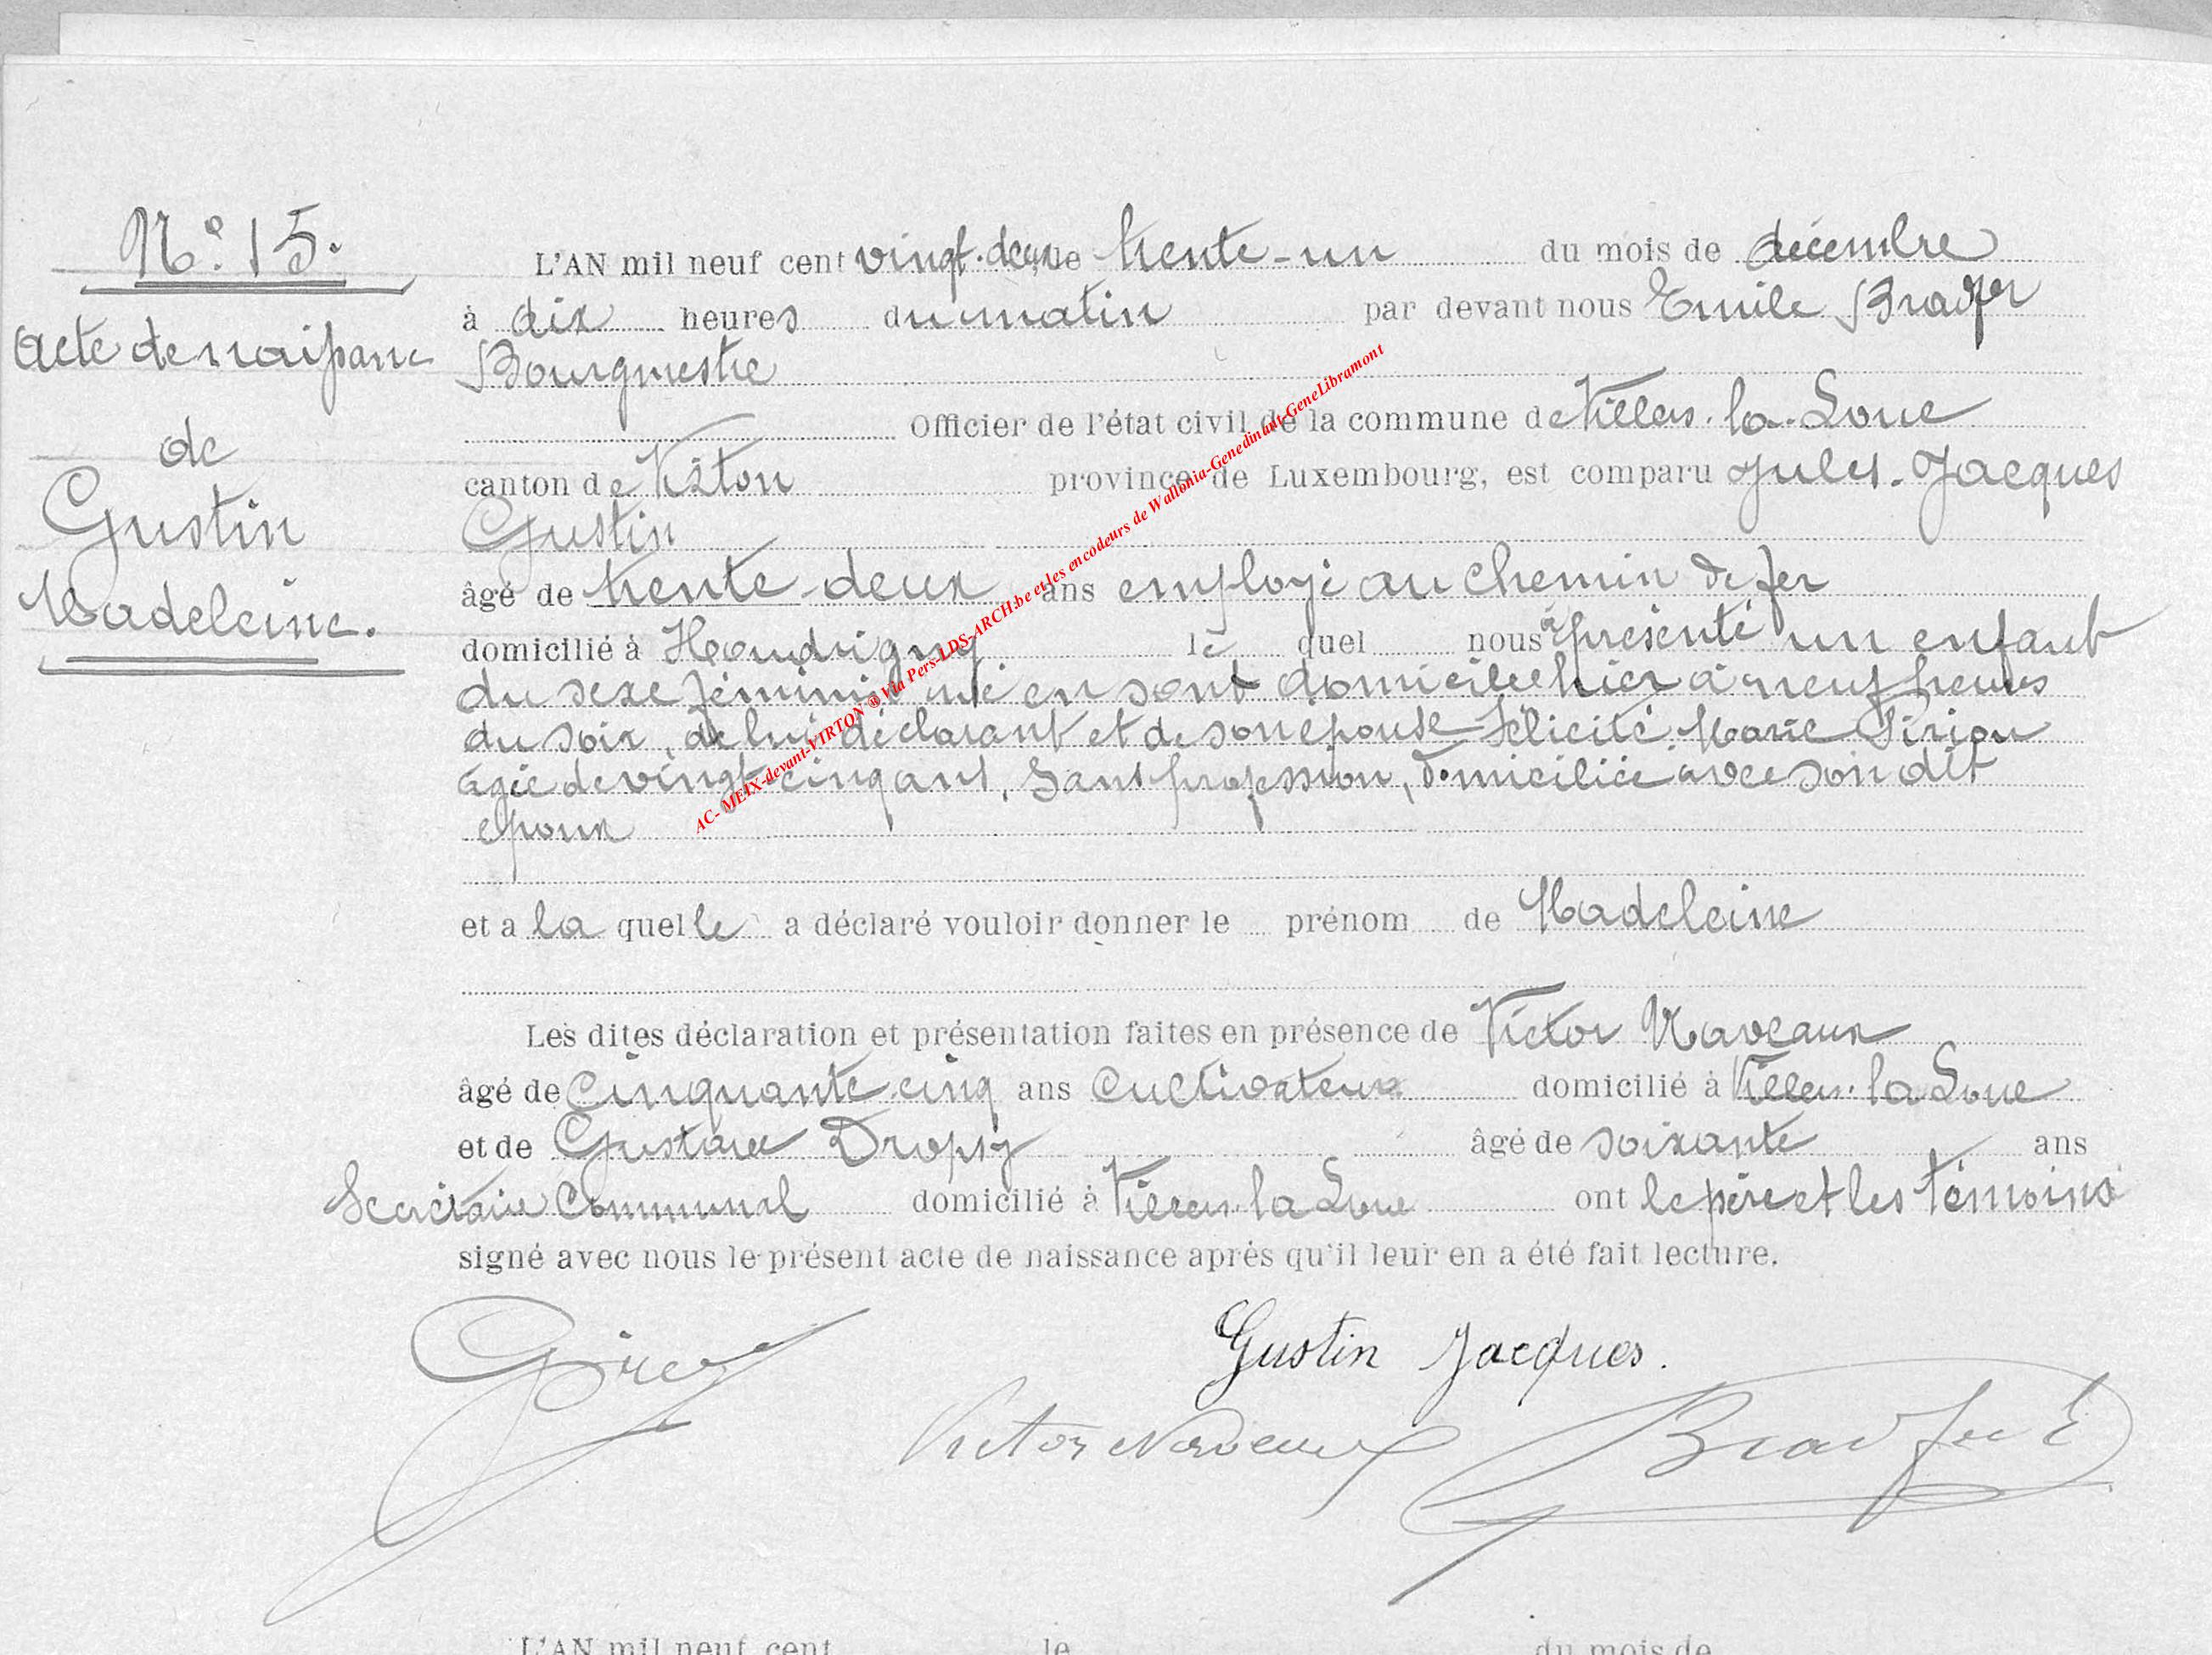 N° 15.
Acte de naissance
de
Gustin
Madeleine.
L'AN mil neuf cent vingt-deux le trente-un du mois de décembre
à dix heures du matin par devant nous Emile
Bourgmestre
Officier de l'état civil de la commune de Villers-la-Loue
canton de Virton province de Luxembourg, est comparu Jules-Jacques
Gustin
âgé de trente-deux ans employé au chemin de fer
domicilié à Houdrigny le quel nous a présenté un enfant
du sexe féminin né en son domicile hier à neuf heures
du soir, de lui déclarant et de son épouse Félicité-Marie
âgée de vingt-cinq ans, sans profession, domiciliée avec son dit
époux
et a la quelle a déclaré vouloir donner le prénom de Madeleine
Les dites déclaration et présentation faites en présence de Victor Naveaux
âgé de cinquante-cinq ans cultivateur domicilié à Villers-la-Loue
et de Gustave Dropsy âgé de soixante ans
Secrétaire Communal domicilié à Villers-la-Loue ont le père et les témoins
signé avec nous le présent acte de naissance après qu'il leur en a été fait lecture.
Gustin Jacques.
Victor Naveaux
L'AN mil neuf cent le du mois de
AC- MEIX-devant-VIRTON ® Via Pers-LDS-ARCH.be et les encodeurs de Wallonia-Genedinfait-GeneLibramont